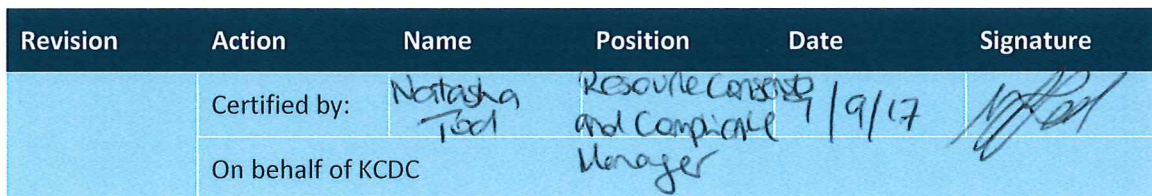 Revision Action Name Position Date Signature
Certified by: Natasha Tod Resource Consents and Compliance Manager 9/17
On behalf of KCDC